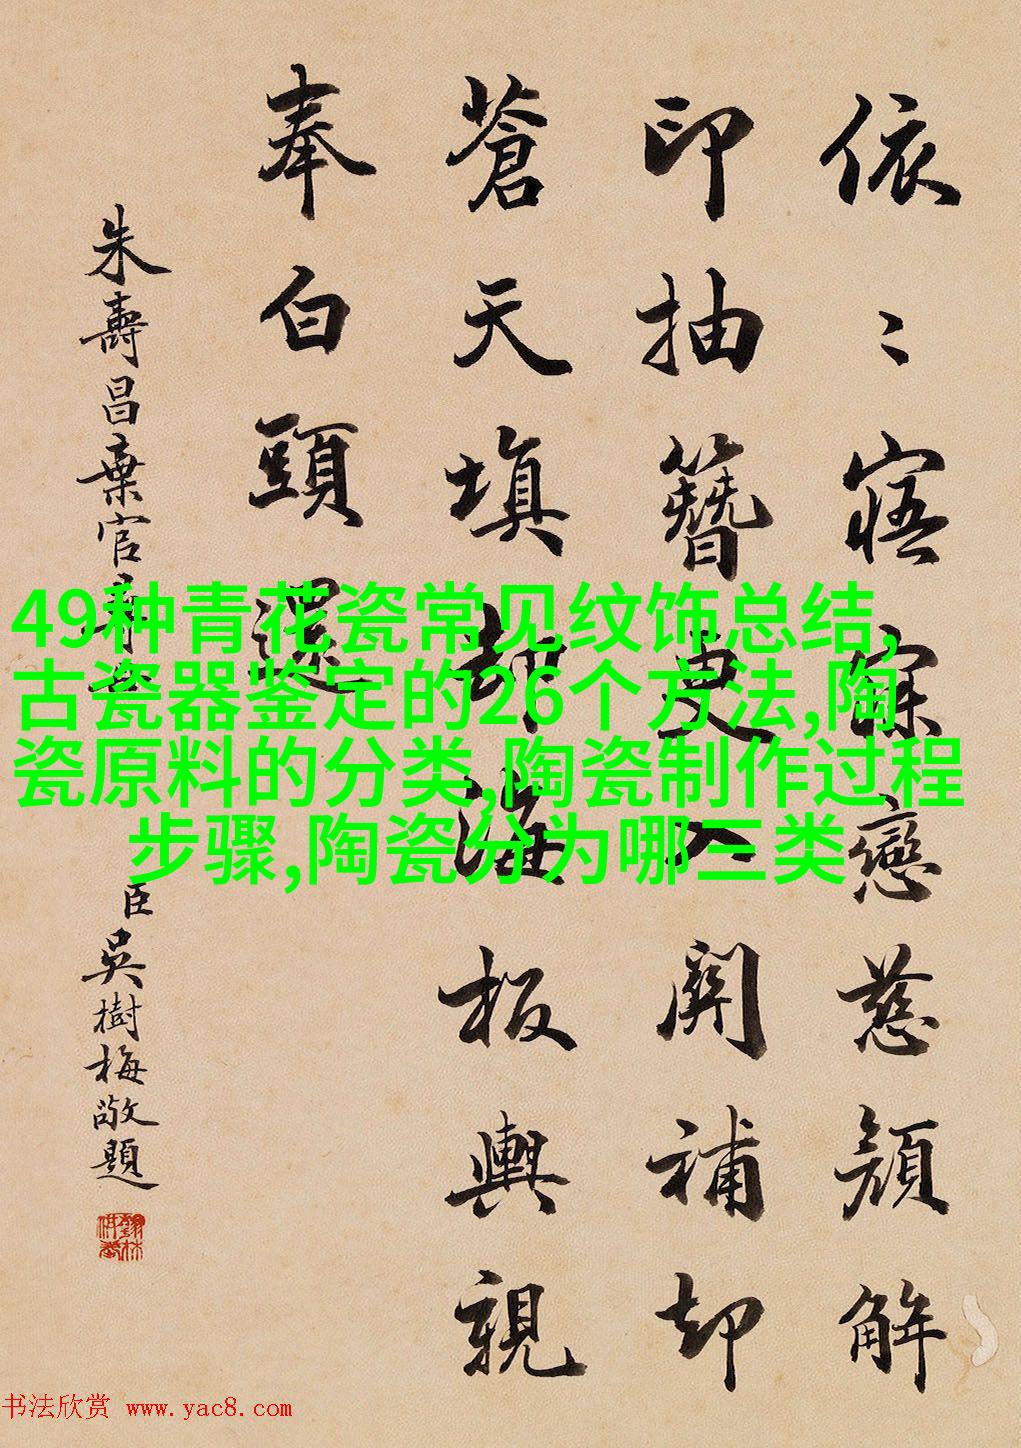 依〻寤寐戀慈顏解
印抽簪更入關補却
蒼天填却海板輿親
奉白頭還
朱壽昌棄官尋母
臣吳樹梅敬題
49种青花瓷常见纹饰总结,
古瓷器鉴定的26个方法,陶
瓷原料的分类,陶瓷制作过程
步骤,陶瓷分为哪三类
书法欣赏 www.yac8.com